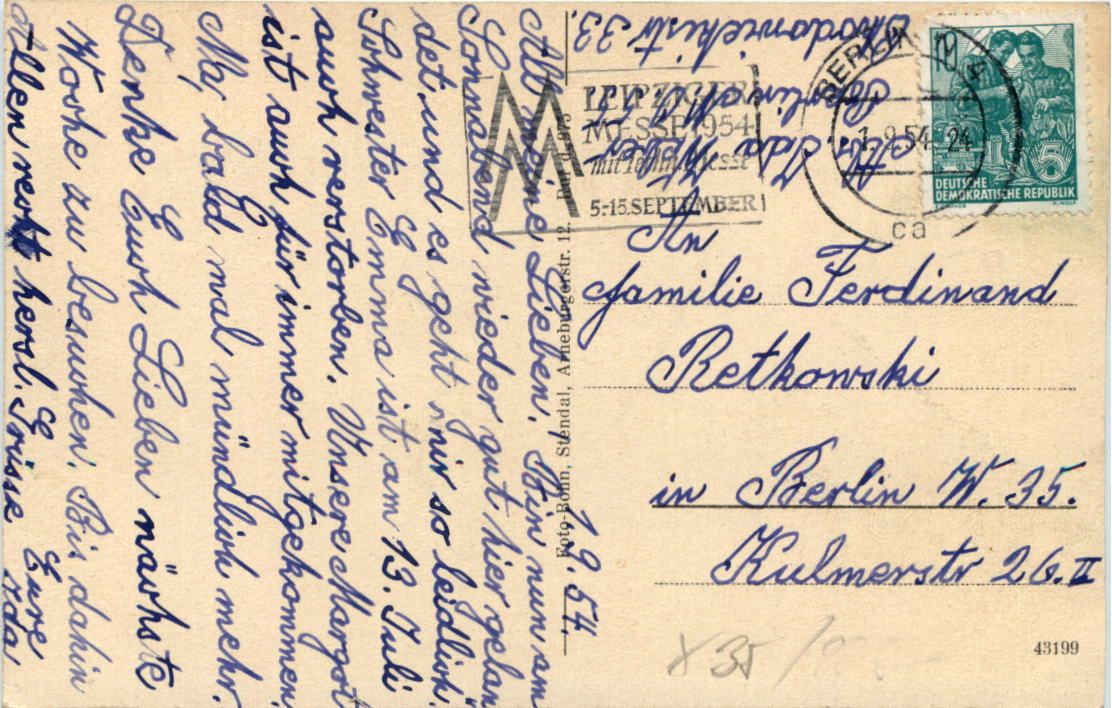 1.9.54.
All meine Lieben! Bin nun am
Sonnabend wieder gut hier gelan
det, und es geht mir so leidlich.
Schwester Emma ist am 13. Juli
auch verstorben. Unsere Margot
ist auch für immer mitgekommen.
Na, bald mal mündlich mehr.
Denke Euch Lieben nächste
Woche zu besuchen. Bis dahin
Allen recht herzl. Grüsse Eure
Ida
Foto-Bonn, Stendal, Arneburgerstr. 12
Ida Weber
Berlin
Chodowieckistr 33.
MM
LEIPZIGER
MESSE 1954
mit Technischer Messe
5.-15. SEPTEMBER
BERLIN 4
-1.9.54.-24
ca
12
15
DEUTSCHE
DEMOKRATISCHE REPUBLIK
An
Familie Ferdinand
Retkowski
in Berlin W. 35.
Kulmerstr 26. II
X 35 /
43199